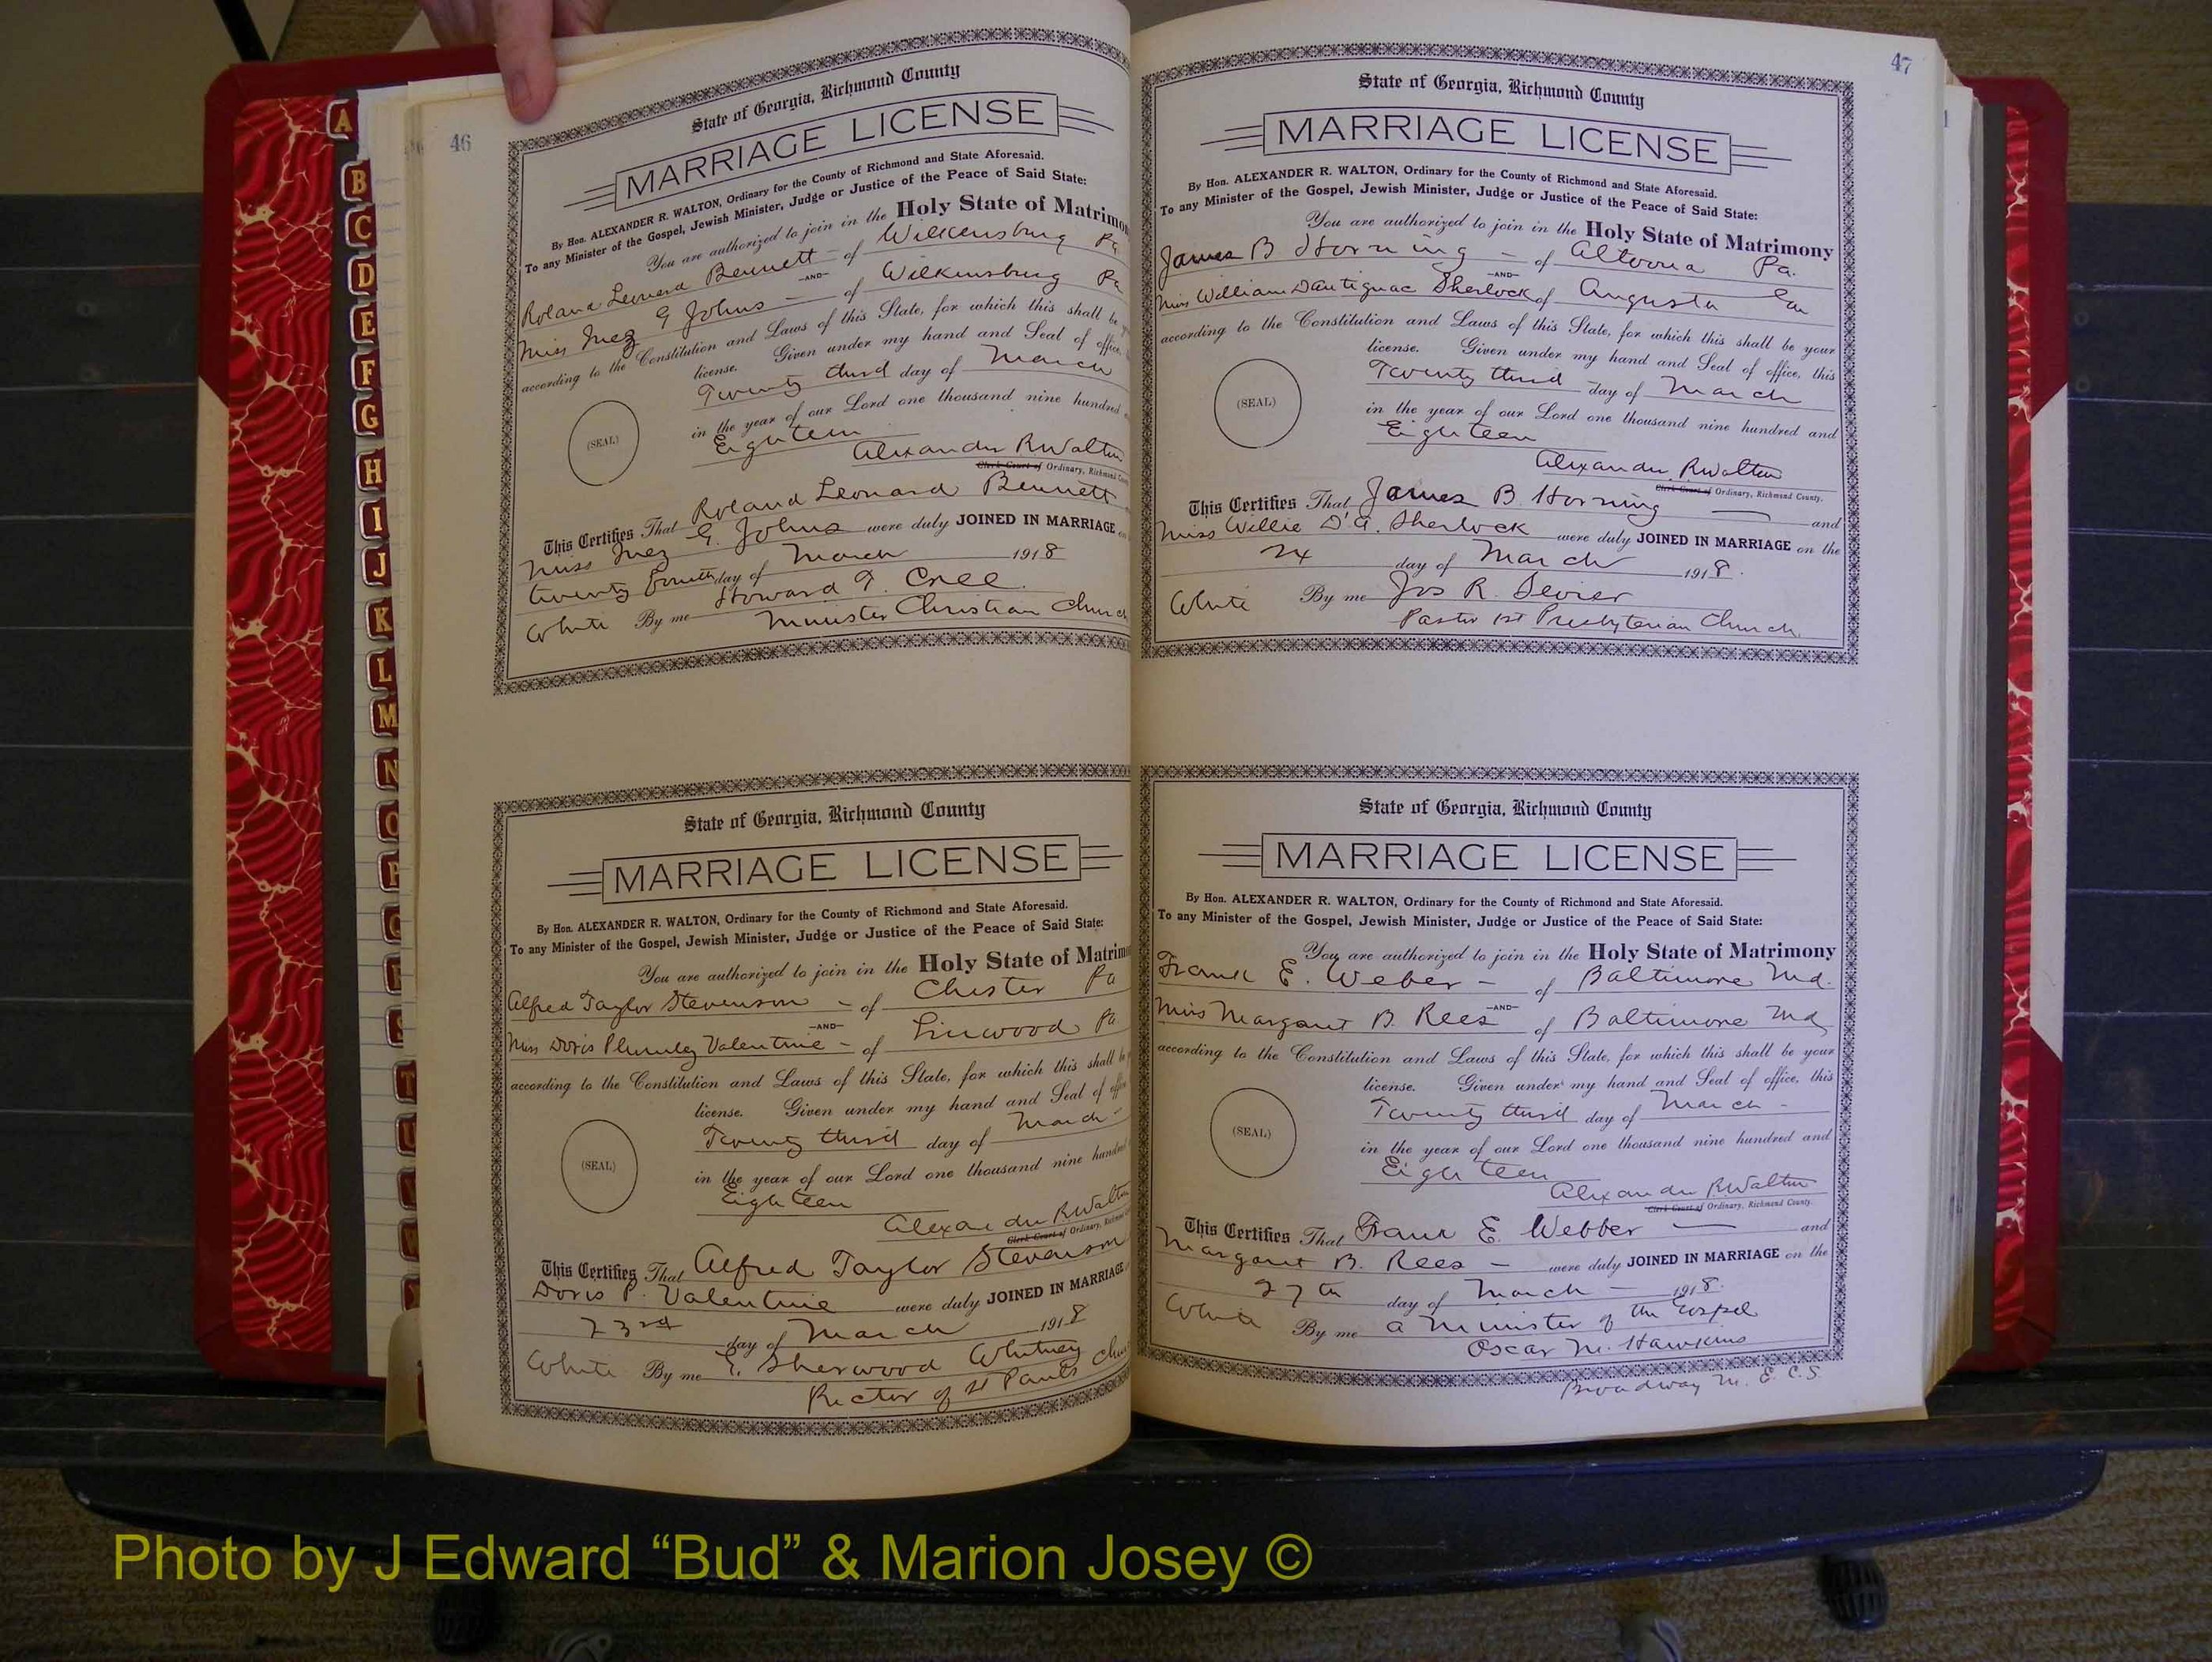 A
B
C
D
E
F
G
H
I
J
K
L
M
N
O
P
Q
R
S
T
U
W
46
State of Georgia, Richmond County
MARRIAGE LICENSE
By Hon. ALEXANDER R. WALTON, Ordinary for the County of Richmond and State Aforesaid.
To any Minister of the Gospel, Jewish Minister, Judge or Justice of the Peace of Said State:
You are authorized to join in the Holy State of Matrimo
Roland Leonard Bennett - of Wilkensburg Pa
-AND-
Miss Inez G Johns - of Wilkinsburg Pa
according to the Constitution and Laws of this State, for which this shall be
license. Given under my hand and Seal of office,
Twenty third day of March
(SEAL)
in the year of our Lord one thousand nine hundred
Eighteen
Alexander R Walton
Clerk Court of Ordinary, Richmond County
This Certifies That Roland Leonard Bennett
Miss Inez G. Johns were duly JOINED IN MARRIAGE
twenty fourth day of March 1918
White By me Howard T. Cree.
Minister Christian Church
State of Georgia, Richmond County
MARRIAGE LICENSE
By Hon. ALEXANDER R. WALTON, Ordinary for the County of Richmond and State Aforesaid.
To any Minister of the Gospel, Jewish Minister, Judge or Justice of the Peace of Said State:
You are authorized to join in the Holy State of Matrim
Alfred Taylor Stevenson - of Chester Pa
-AND-
Miss Doris Plumley Valentine - of Linwood Pa
according to the Constitution and Laws of this State, for which this shall be
license. Given under my hand and Seal of office
Twenty third day of March -
(SEAL)
in the year of our Lord one thousand nine hundred
Eighteen
Alexander R Walton
Clerk Court of Ordinary, Richmond
This Certifies That Alfred Taylor Stevenson
Doris P. Valentine were duly JOINED IN MARRIAGE
23rd day of March 1918
White By me E. Sherwood Whitney
Rector of St Pauls Chu
47
State of Georgia, Richmond County
MARRIAGE LICENSE
By Hon. ALEXANDER R. WALTON, Ordinary for the County of Richmond and State Aforesaid.
To any Minister of the Gospel, Jewish Minister, Judge or Justice of the Peace of Said State:
You are authorized to join in the Holy State of Matrimony
James B Horning - of Altoona Pa.
-AND-
Miss William Dantignac Sherlock of Augusta Ga
according to the Constitution and Laws of this State, for which this shall be your
license. Given under my hand and Seal of office, this
Twenty third day of March
(SEAL)
in the year of our Lord one thousand nine hundred and
Eighteen
Alexander R Walton
Clerk Court of Ordinary, Richmond County.
This Certifies That James B. Horning and
Miss Willie D'A. Sherlock were duly JOINED IN MARRIAGE on the
24 day of March 1918.
White By me Jos R. Sevier
Pastor 1st Presbyterian Church
State of Georgia, Richmond County
MARRIAGE LICENSE
By Hon. ALEXANDER R. WALTON, Ordinary for the County of Richmond and State Aforesaid.
To any Minister of the Gospel, Jewish Minister, Judge or Justice of the Peace of Said State:
You are authorized to join in the Holy State of Matrimony
Frank E. Weber - of Baltimore Md.
-AND-
Miss Margaret B. Rees of Baltimore Md
according to the Constitution and Laws of this State, for which this shall be your
license. Given under my hand and Seal of office, this
Twenty third day of March -
(SEAL)
in the year of our Lord one thousand nine hundred and
Eighteen
Alexander R Walton
Clerk Court of Ordinary, Richmond County.
This Certifies That Frank E. Webber and
Margaret B. Rees - were duly JOINED IN MARRIAGE on the
27th day of March - 1918.
White By me a Minister of the Gospel
Oscar M. Hawkins
Broadway M. E. C. S.
Photo by J Edward “Bud” & Marion Josey ©